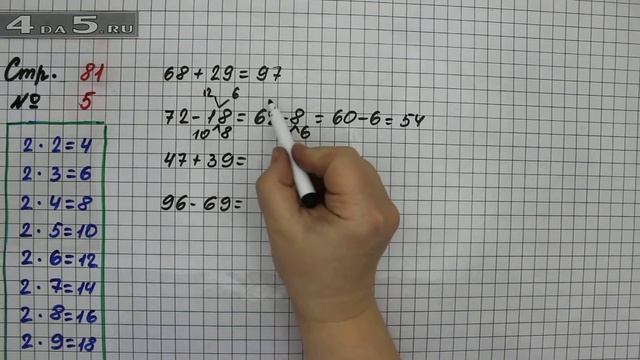 4 DA 5.RU
Стр. 81
№ 5
2 · 2 = 4
2 · 3 = 6
2 · 4 = 8
2 · 5 = 10
2 · 6 = 12
2 · 7 = 14
2 · 8 = 16
2 · 9 = 18
68 + 29 = 97
12 6
72 - 18 = 62 - 8 = 60 - 6 = 54
10 8 6
47 + 39 =
96 - 69 =